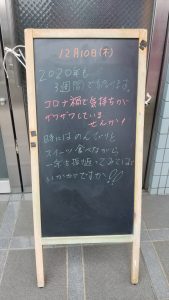 12月10日(木)
2020年も
3週間で終わります。
コロナ禍で気持ちが
ザワザワしていま
せんか?
時にはのんびりと
スイーツ食べながら
一年を振り返ってみては
いかがですか!!